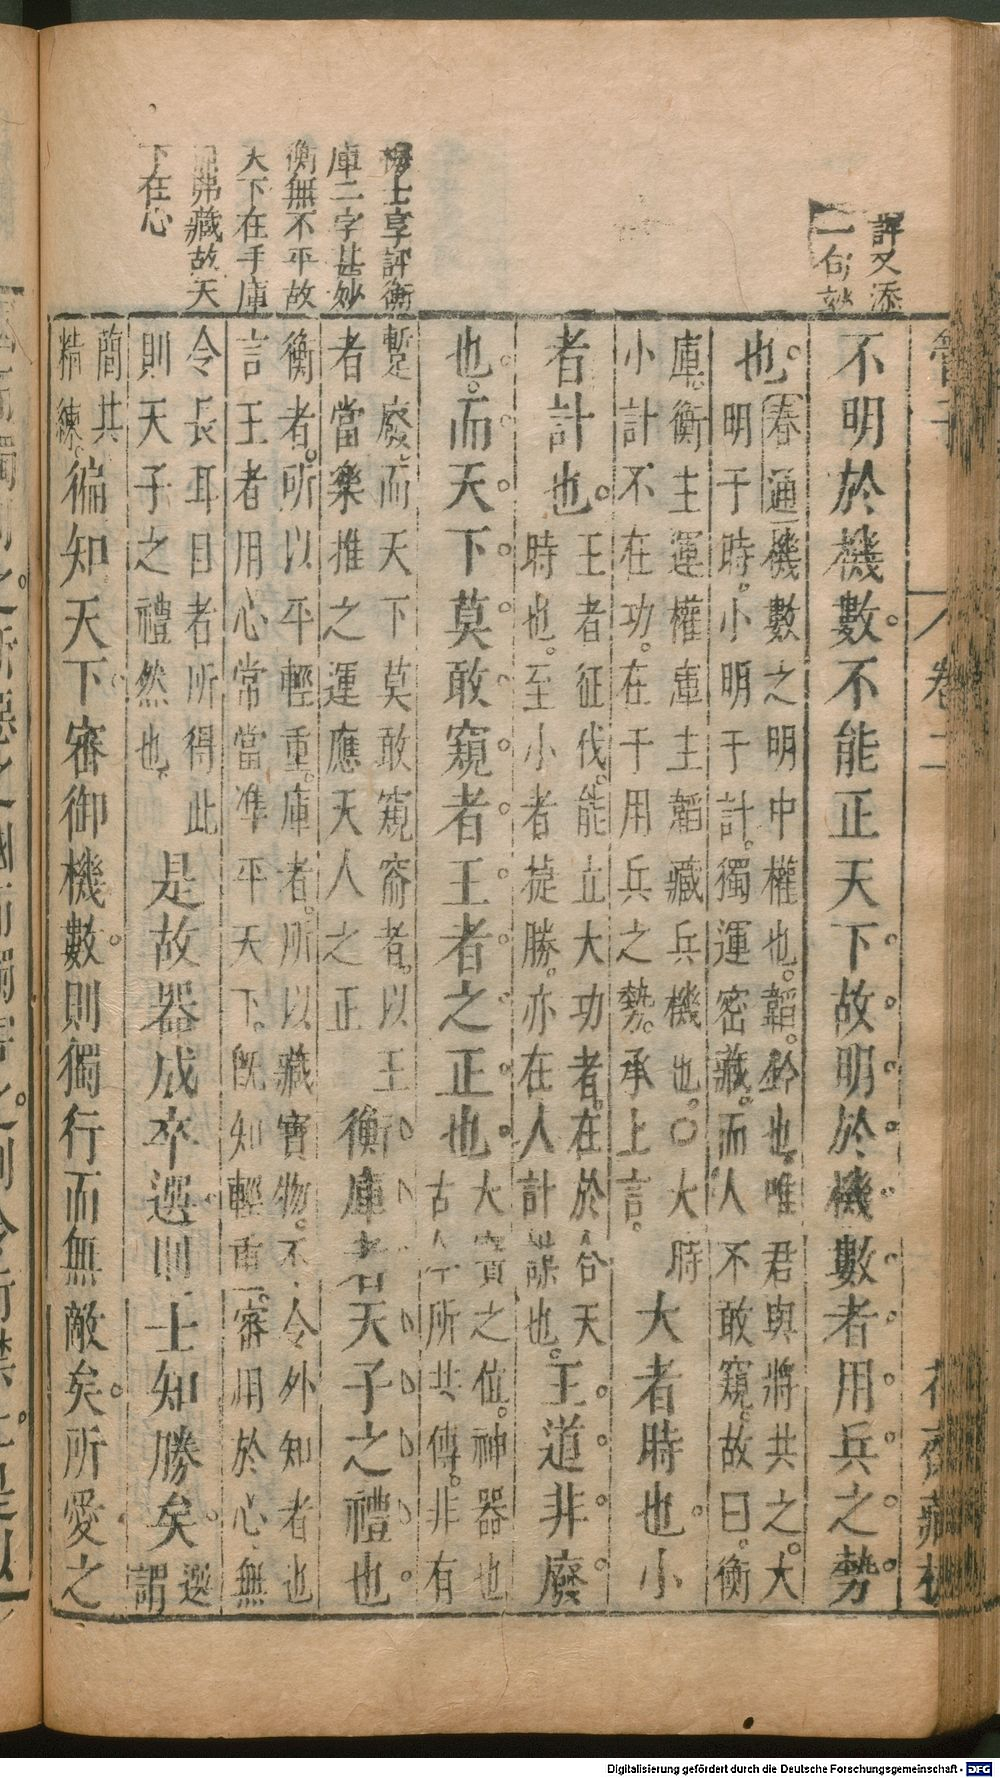 評又添
一句妙
士享評衡
庫二字甚妙
衡無不平故
天下在手庫
弗藏故天
下在心
管子
卷二
花齋藏板
不明於機數不能正天下故明於機數者用兵之勢
也
春通機數之明中權也韜鈐也唯君與將共之大
明于時小明于計獨運密藏而人不敢窺故曰衡
庫衡主運權庫主韜藏兵機也○大時
小計不在功在于用兵之勢承上言
大者時也小
者計也
王者征伐能立大功者在於合天
時也至小者捷勝亦在人計謀也
王道非廢
也而天下莫敢窺者王者之正也
大寶之位神器也
古今所共傳非有
暫廢而天下莫敢窺窬者以王
者當樂推之運應天人之正
衡庫者天子之禮也
衡者所以平輕重庫者所以藏寶物不令外知者也
言王者用心常當準平天下既知輕重審用於心無
令長耳目者所得此
則天子之禮然也
是故器成卒選則士知勝矣
選
謂
簡共
精練
徧知天下審御機數則獨行而無敵矣所愛之
Digitalisierung gefördert durch die Deutsche Forschungsgemeinschaft - DFG